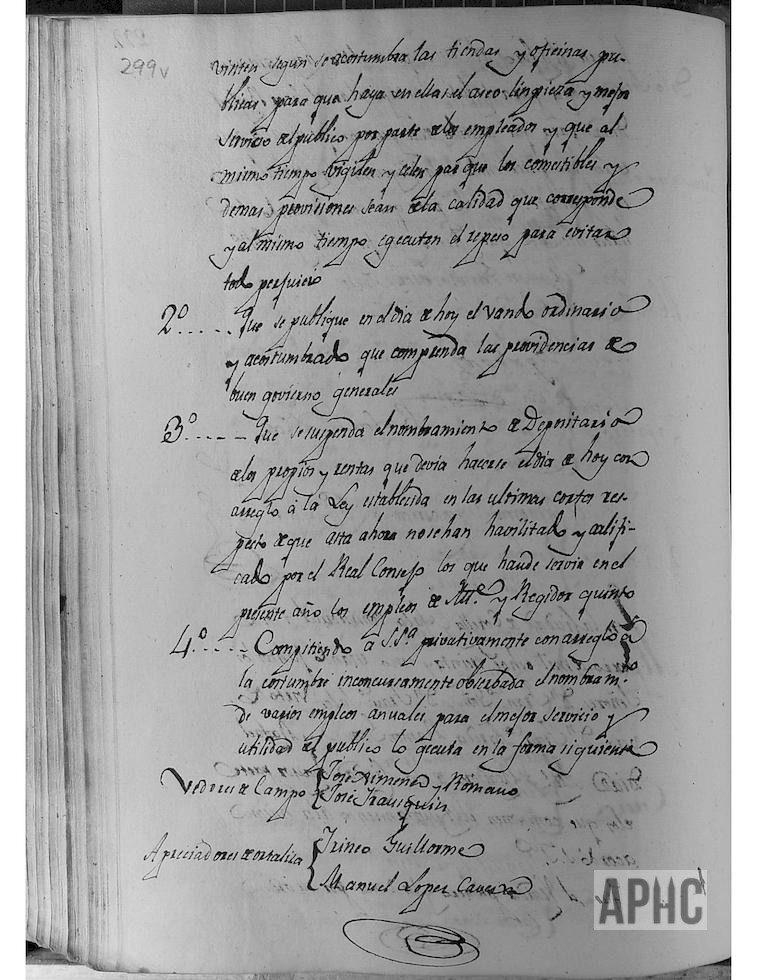 299v
visiten segun se acostumbra las tiendas y oficinas pu-
blicas para que haya en ellas el aseo limpieza y mejor
servicio del publico por parte de los empleados y que al
mismo tiempo vigilen y celen para que los comestibles y
demas provisiones sean de la calidad que corresponde
y al mismo tiempo egecuten el repeso para evitar
todo perjuicio
2º..... Que se publique en el dia de hoy el vando ordinario
y acostumbrado que comprenda las providencias de
buen govierno generales
3º..... Que se suspenda el nombramiento de Depositario
de los propios y rentas que devia hacerse el dia de hoy con
arreglo à la Ley establecida en las ultimas cortes res-
pecto de que asta ahora no se han havilitado y califi-
cado por el Real Consejo los que han de servir en el
presente año los empleos de Alle. y Regidor quinto
4º..... Compitiendo a S.Sª privativamente con arreglo à
la costumbre inconcusamente obserbada el nombram.to
de varios empleos anuales para el mejor servicio y
utilidad del publico lo gecuta en la forma siguiente
Vedores de Campo { José Ximenez y Romano
José Frauquin
Apreciadores de ortaliza { Irineo Guillorme
Manuel Lopez Cavezza
APHC